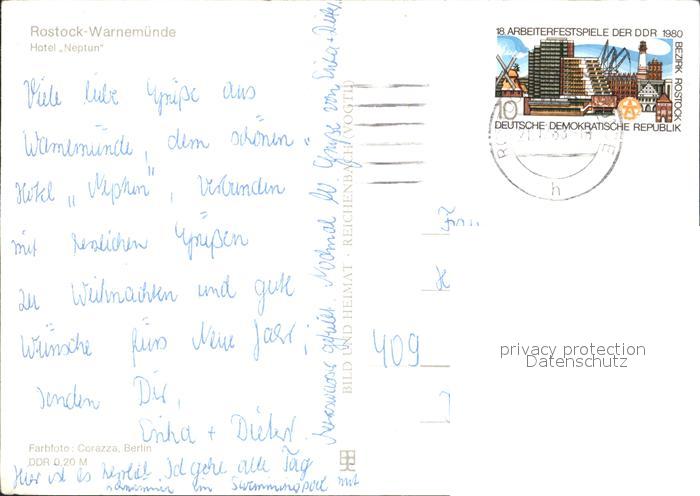 Rostock-Warnemünde
Hotel „Neptun"
Viele liebe Grüße aus
Warnemünde, dem schönen
Hotel „Neptun", verbunden
mit herzlichen Grüßen
zu Weihnachten und gute
Wünsche fürs Neue Jahr;
senden Dir,
Erika + Dieter.
Farbfoto: Corazza, Berlin
DDR 0,20 M
Hier ist es herrlich. Ich gehe alle Tag
schwimmen im Swimmingpool mit
gefüllt. Nochmal Grüße von Erika + Dieter
BILD UND HEIMAT · REICHENBACH (VOGTL)
18. ARBEITERFESTSPIELE DER DDR 1980
BEZIRK ROSTOCK
10
DEUTSCHE DEMOKRATISCHE REPUBLIK
h
409
privacy protection
Datenschutz